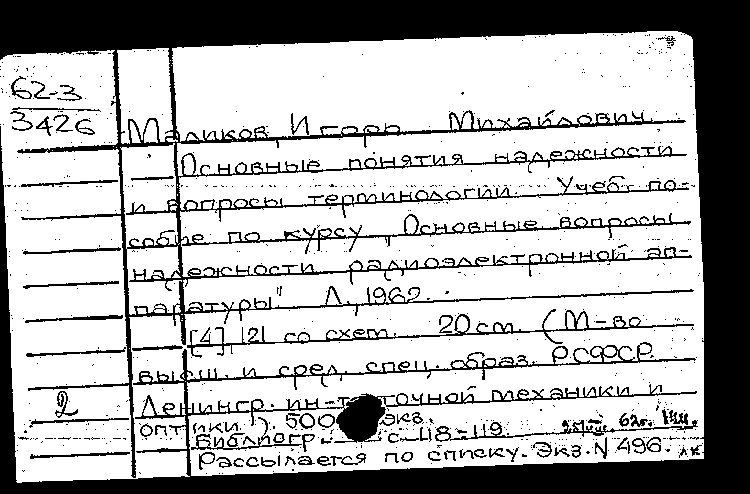 62-3
3426
Маликов, Игорь Михайлович.
Основные понятия надежности
и вопросы терминологии. Учеб. по-
собие по курсу „Основные вопросы
надежности радиоэлектронной ап-
паратуры" Л., 1962.
[4], 121 со схем. 20 см. (М-во
высш. и сред. спец. образ. РСФСР.
2 Ленингр. ин-т точной механики и
оптики). 500 экз.
Библиогр. с. 118-119. 62г.
Рассылается по списку. Экз. N 496.